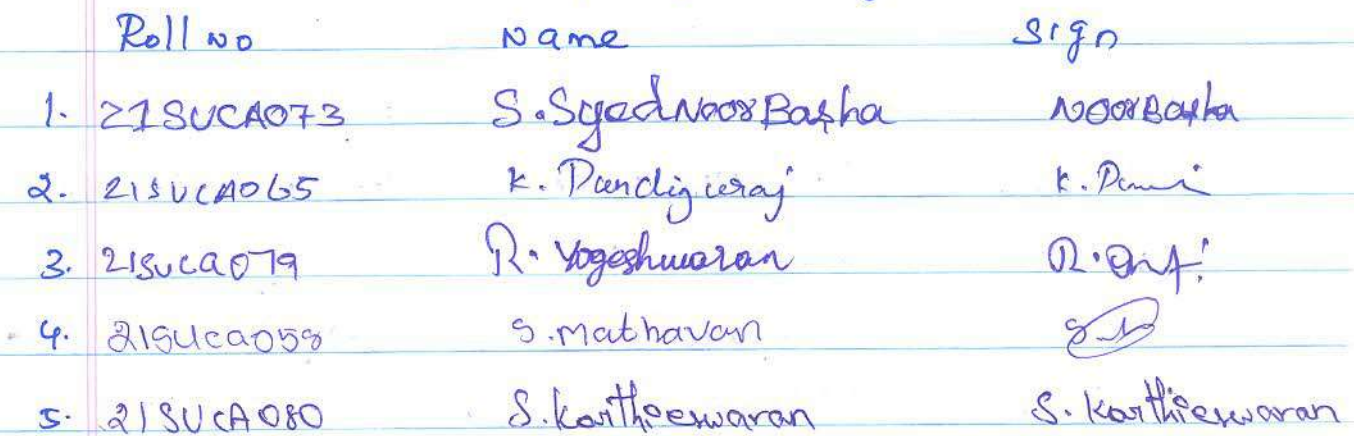 Roll no Name Sign
1. 21SUCA073 S. Syed Noor Basha Noor Basha
2. 21SUCA065 K. Pandiyaraj K.
3. 21SUCA079 R. Yogeshwaran R.
4. 21SUCA058 S. Mathavan
5. 21SUCA080 S. Kartheeswaran S. Karthieswaran